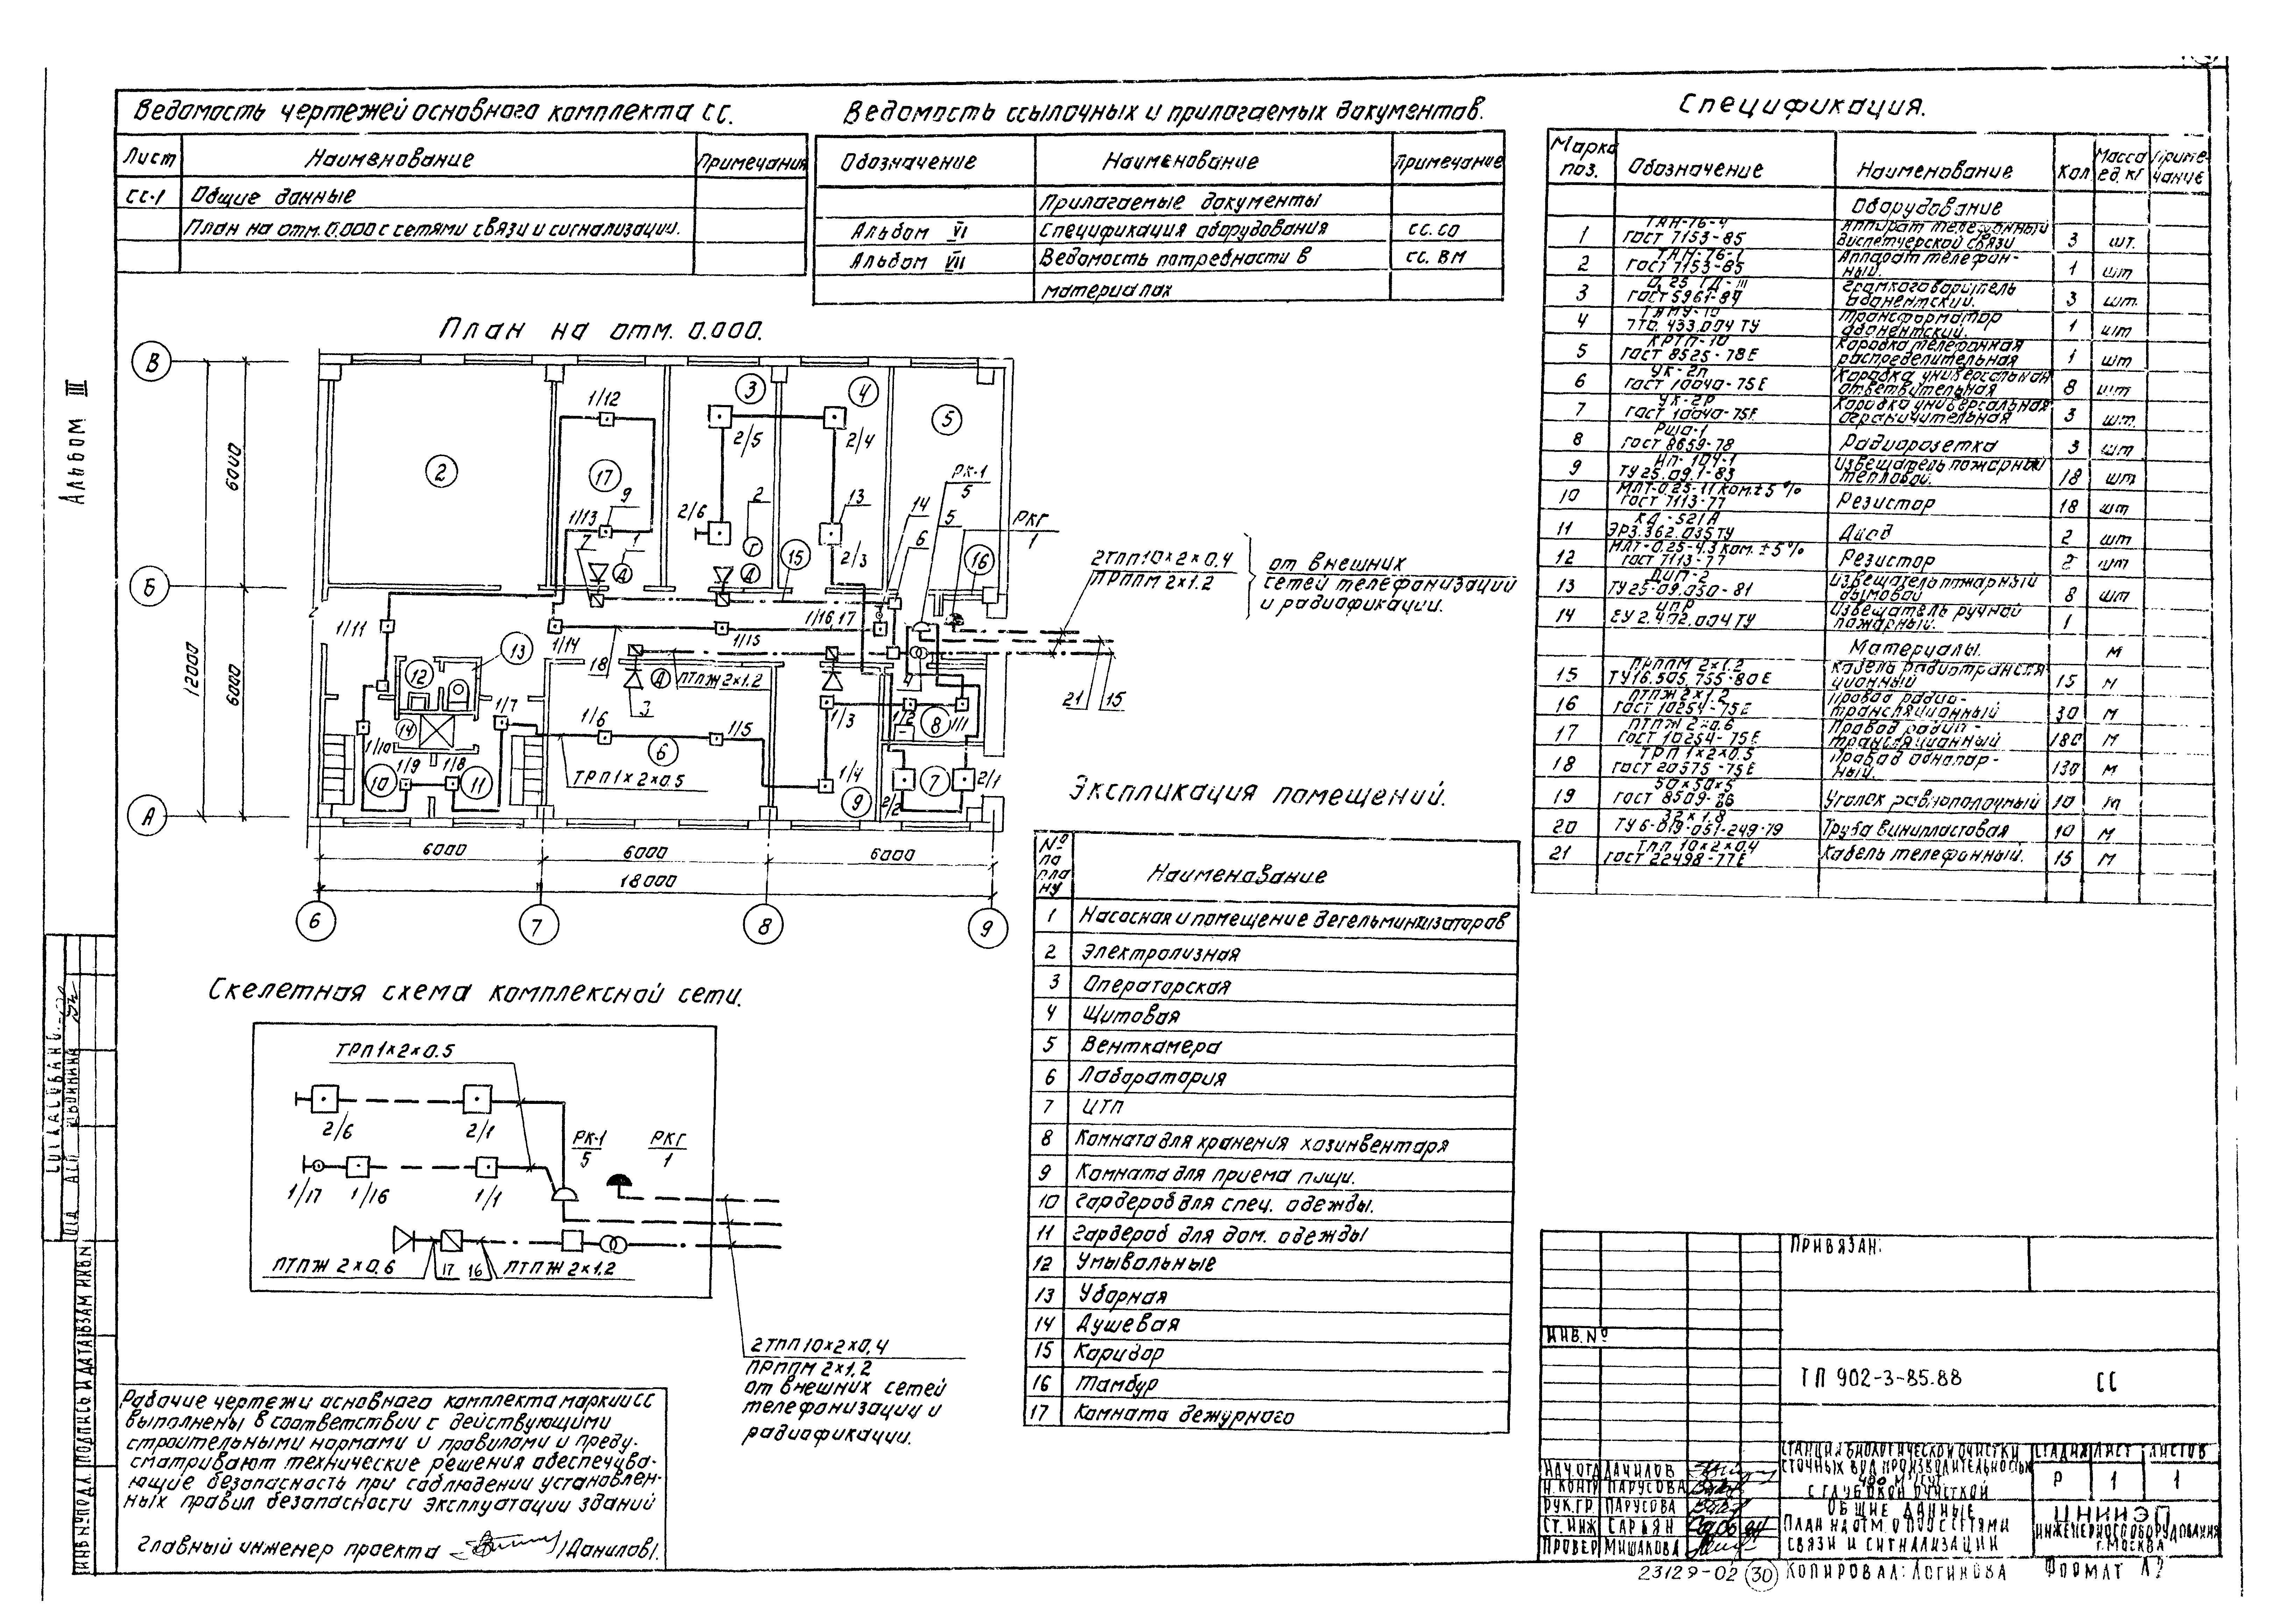 Ведомость чертежей основного комплекта СС.
Лист Наименование Примечания
СС-1 Общие данные
План на отм. 0.000 с сетями связи и сигнализации.
Ведомость ссылочных и прилагаемых документов.
Обозначение Наименование Примечание
Прилагаемые документы
Альбом VI Спецификация оборудования СС.СО
Альбом VII Ведомость потребности в СС.ВМ
материалах
Спецификация.
Марка поз. Обозначение Наименование Кол Масса ед. кг Примечание
Оборудование
1 ТАН-76-4 ГОСТ 7153-85 Аппарат телефонный диспетчерской связи 3 шт.
2 ГОСТ 7153-85 Аппарат телефонный. 1 шт
3 0,25 ГД-III ГОСТ 5961-84 Громкоговоритель абонентский. 3 шт.
4 ТАМУ-10 7ТО. 433.004 ТУ Трансформатор абонентский. 1 шт
5 КРТП-10 ГОСТ 8525-78Е Коробка телефонная распределительная 1 шт
6 УК-2п ГОСТ 10040-75Е Коробка универсальная ответвительная 8 шт
7 УК-2Р ГОСТ 10040-75Е Коробка универсальная ограничительная 3 шт.
8 РШО-1 ГОСТ 8659-78 Радиорозетка 3 шт
9 ИП-104-1 ТУ 25.09.1-83 Извещатель пожарный тепловой. 18 шт
10 МЛТ-0.25-11 ком.±5% ГОСТ 7113-77 Резистор 18 шт
11 КД-521А ЭР3.362.035ТУ Диод 2 шт
12 МЛТ-0.25-4.3 ком.±5% ГОСТ 7113-77 Резистор 2 шт
13 ДИП-2 ТУ25-09.050-81 Извещатель пожарный дымовой 8 шт
14 ИПР ЕУ 2.402.004 ТУ Извещатель ручной пожарный. 1
Материалы. м
15 ПРППМ 2×1.2 ТУ16.505.755-80Е Кабель радиотрансляционный 15 м
16 ПТПЖ 2×1.2 ГОСТ 10254-75Е Провод радиотрансляционный 30 м
17 ПТПЖ 2×0.6 ГОСТ 10254-75Е Провод радиотрансляционный 180 м
18 ТРП 1×2×0.5 ГОСТ 20575-75Е Провод однопарный. 130 м
19 50×50×5 ГОСТ 8509-86 Уголок равнополочный 10 м
20 32×1,8 ТУ6-019-051-249-79 Труба винипластовая 10 м
21 ТПП 10×2×0,4 ГОСТ 22498-77Е Кабель телефонный. 15 м
Альбом III
План на отм. 0.000.
В
Б
А
6000
6000
12000
1/12
3
4
5
2/5
2/4
2
17
9
2/6
2
13
14
РК-1
5
5
6
РКГ
1
1/13
7
1
Г
А
А
15
2/3
16
2ТПП10×2×0.4
ПРППМ 2×1.2
от внешних
сетей телефонизации
и радиофикации.
1/11
1/14
1/15
1/16,17
13
18
12
А
ПТПЖ 2×1.2
3
4
21
15
14
1/10
1/7
1/6
1/5
1/3
1/2
8
1/1
6
10
1/9
1/8
11
ТРП1×2×0.5
1/4
9
2/2
7
2/1
6000 6000 6000
18000
6 7 8 9
Экспликация помещений.
№ по плану Наименование
1 Насосная и помещение дегельминтизаторов
2 Электролизная
3 Операторская
4 Щитовая
5 Венткамера
6 Лаборатория
7 ЦТП
8 Комната для хранения хозинвентаря
9 Комната для приема пищи.
10 Гардероб для спец. одежды.
11 Гардероб для дом. одежды
12 Умывальные
13 Уборная
14 Душевая
15 Коридор
16 Тамбур
17 Комната дежурного
Скелетная схема комплексной сети.
ТРП1×2×0.5
2/6
2/1
РК-1
5
РКГ
1
1/17
1/16
1/1
ПТПЖ 2×0,6
17
16
ПТПЖ 2×1,2
2ТПП10×2×0,4
ПРППМ 2×1,2
от внешних сетей
телефонизации и
радиофикации.
Рабочие чертежи основного комплекта марки СС
выполнены в соответствии с действующими
строительными нормами и правилами и преду-
сматривают технические решения обеспечива-
ющие безопасность при соблюдении установлен-
ных правил безопасности эксплуатации зданий
Главный инженер проекта /Данилов/.
ИНВ № ПОДЛ. ПОДПИСЬ И ДАТА ВЗАМ ИНВ N
ПРИВЯЗАН:
ИНВ. №
ТП 902-3-85.88 СС
НАЧ.ОТД ДАНИЛОВ
Н.КОНТР ПАРУСОВА
РУК.ГР. ПАРУСОВА
СТ.ИНЖ САРЬЯН
ПРОВЕР МИШАКОВА
СТАНЦИЯ БИОЛОГИЧЕСКОЙ ОЧИСТКИ
СТОЧНЫХ ВОД ПРОИЗВОДИТЕЛЬНОСТЬЮ
400 м³/сут.
С ГЛУБОКОЙ ОЧИСТКОЙ
СТАДИЯ ЛИСТ ЛИСТОВ
Р 1 1
ОБЩИЕ ДАННЫЕ
ПЛАН НА ОТМ. 0.000 С СЕТЯМИ
СВЯЗИ И СИГНАЛИЗАЦИИ
ЦНИИЭП
ИНЖЕНЕРНОГО ОБОРУДОВАНИЯ
г. МОСКВА
23129-02 30 КОПИРОВАЛ: ЛОГИНОВА ФОРМАТ А2